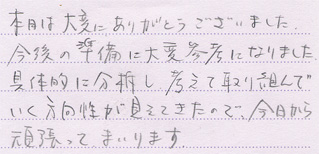 本日は大変にありがとうございました.
今後の準備に大変参考になりました
具体的に分析し考えて取り組んで
いく方向性が見えてきたので、今日から
頑張ってまいります.